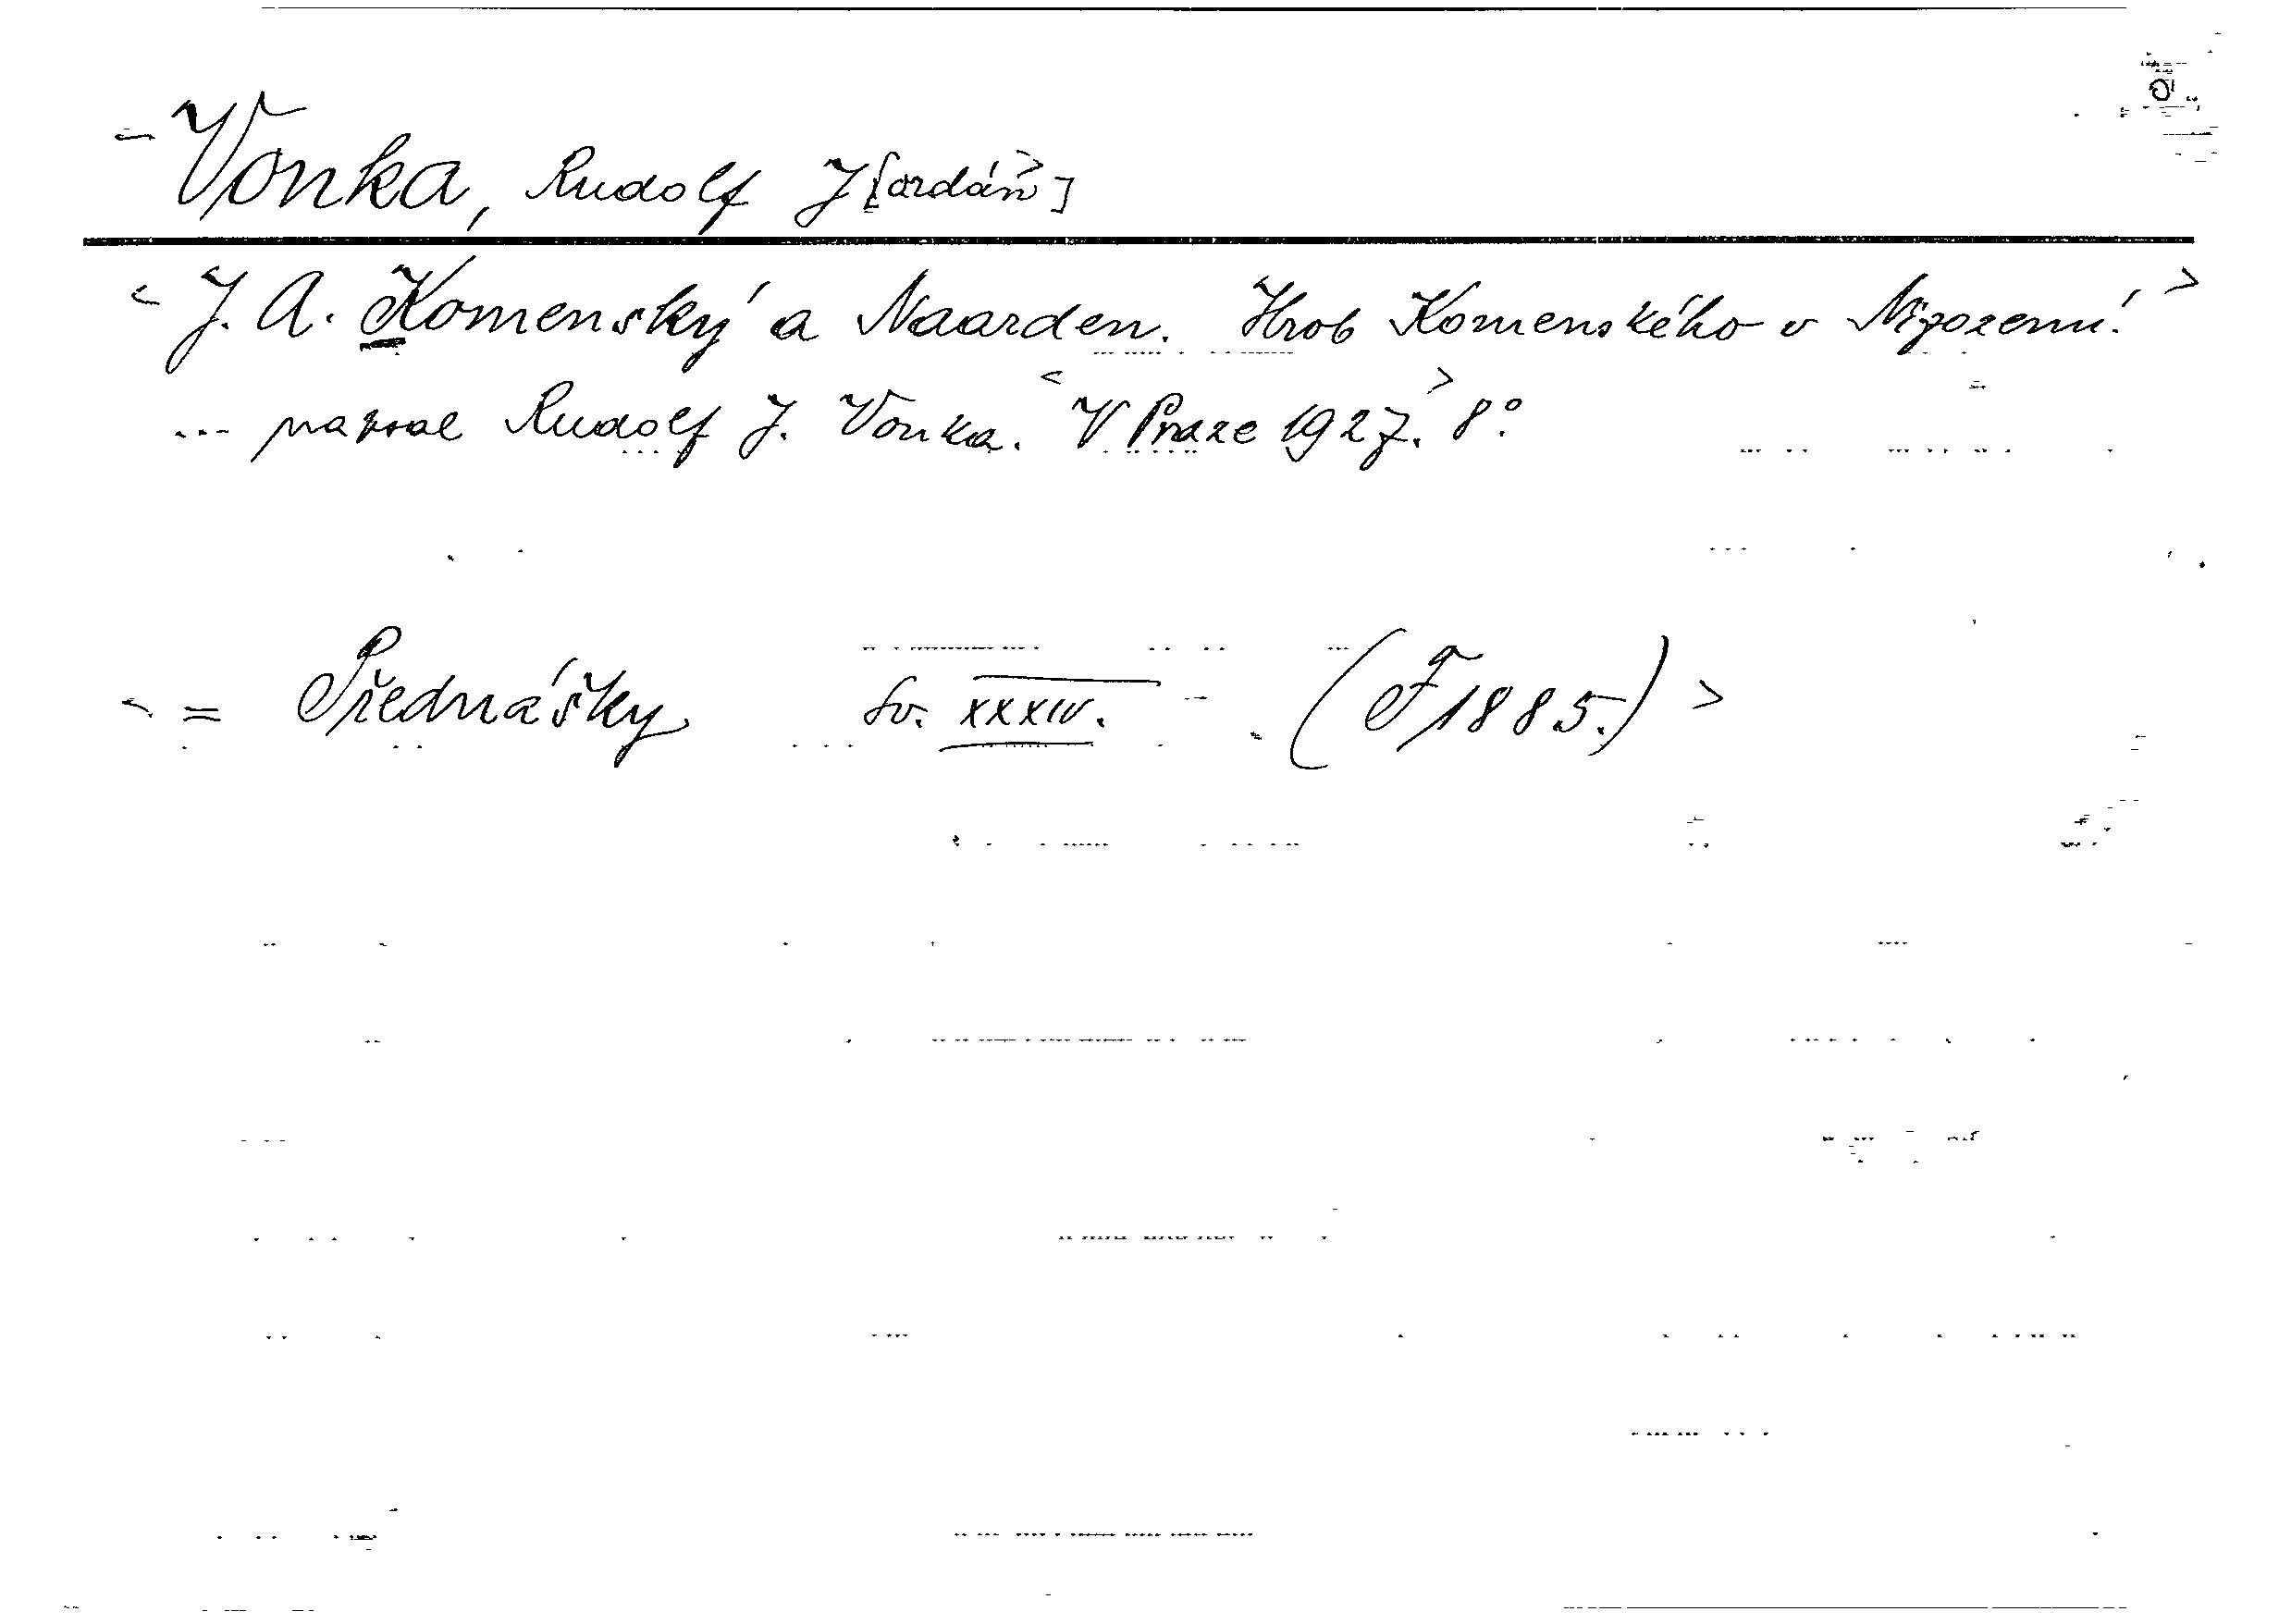 Vonka, Rudolf J[ordáň]
<J. A. Komenský a Naarden. Hrob Komenského v Nizozemí.>
... napsal Rudolf J. Vonka. <V Praze 1927.> 8°.
< = Přednášky sv. XXXIV. (F 1885.) >